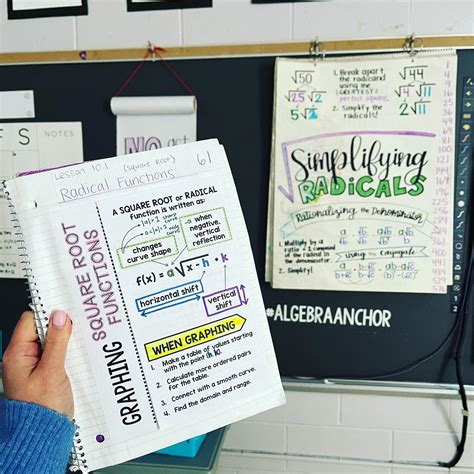 F S NOTES
NO
Lesson 10.1 (square root) 61
Radical Functions
GRAPHING
SQUARE ROOT
FUNCTIONS
A SQUARE ROOT or RADICAL
function is written as:
changes
curve shape
when
negative,
vertical
reflection
f(x) = a√x - h + k
horizontal shift
vertical
shift
WHEN GRAPHING
1. Make a table of values starting
with the point (h, k).
2. Calculate more ordered pairs
for the table.
3. Connect with a smooth curve.
4. Find the domain and range.
√50
√25 √2
5√2
1. Break apart
the radicand
using the
GREATEST
perfect square.
2. Simplify
the
radicals!
√44
√4 √11
2√11
Simplifying
RADICALS
Rationalizing the Denominator
1. Multiply by
2. Simplify!
Using the Conjugate
1
4
9
16
25
36
49
64
81
100
121
144
169
196
225
256
289
324
361
#ALGEBRAANCHOR